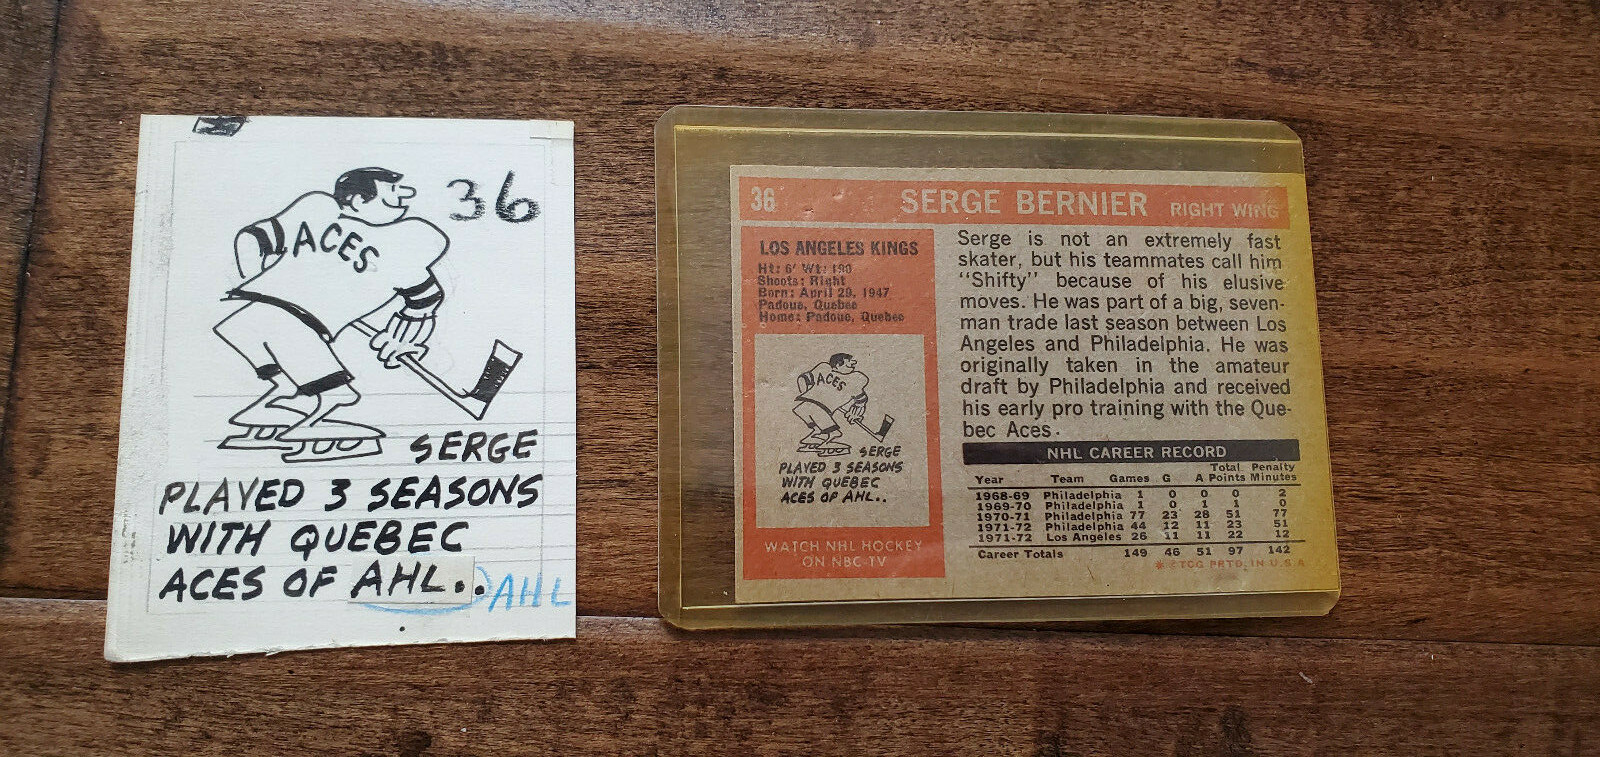 36
ACES
SERGE
PLAYED 3 SEASONS
WITH QUEBEC
ACES OF AHL..
AHL
36 SERGE BERNIER RIGHT WING
LOS ANGELES KINGS
Ht: 6' Wt: 190
Shoots: Right
Born: April 29, 1947
Padoue, Quebec
Home: Padoue, Quebec
ACES
SERGE
PLAYED 3 SEASONS
WITH QUEBEC
ACES OF AHL..
WATCH NHL HOCKEY
ON NBC-TV
Serge is not an extremely fast
skater, but his teammates call him
"Shifty" because of his elusive
moves. He was part of a big, seven-
man trade last season between Los
Angeles and Philadelphia. He was
originally taken in the amateur
draft by Philadelphia and received
his early pro training with the Que-
bec Aces.
NHL CAREER RECORD
Year Team Games G A Total Points Penalty Minutes
1968-69 Philadelphia 1 0 0 0 2
1969-70 Philadelphia 1 0 1 1 0
1970-71 Philadelphia 77 23 28 51 77
1971-72 Philadelphia 44 12 11 23 51
1971-72 Los Angeles 26 11 11 22 12
Career Totals 149 46 51 97 142
* © TCG PRTD. IN U.S.A